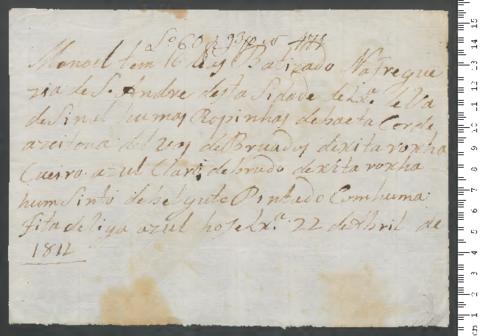 Manoel tem 16 dias Batizado Na fregue
zia de S. Andre desta Sidade de Lxa. leVa
de Sinal humas Ropinhas de baeta Cor de
azeitona del Rey deBruadas de xita roxha
Cueiro azul Claro debruado de xita roxha
hum Sinto de belbute Pintado Com huma
fita de liga azul hoje Lxa. 22 de Abril de
1812